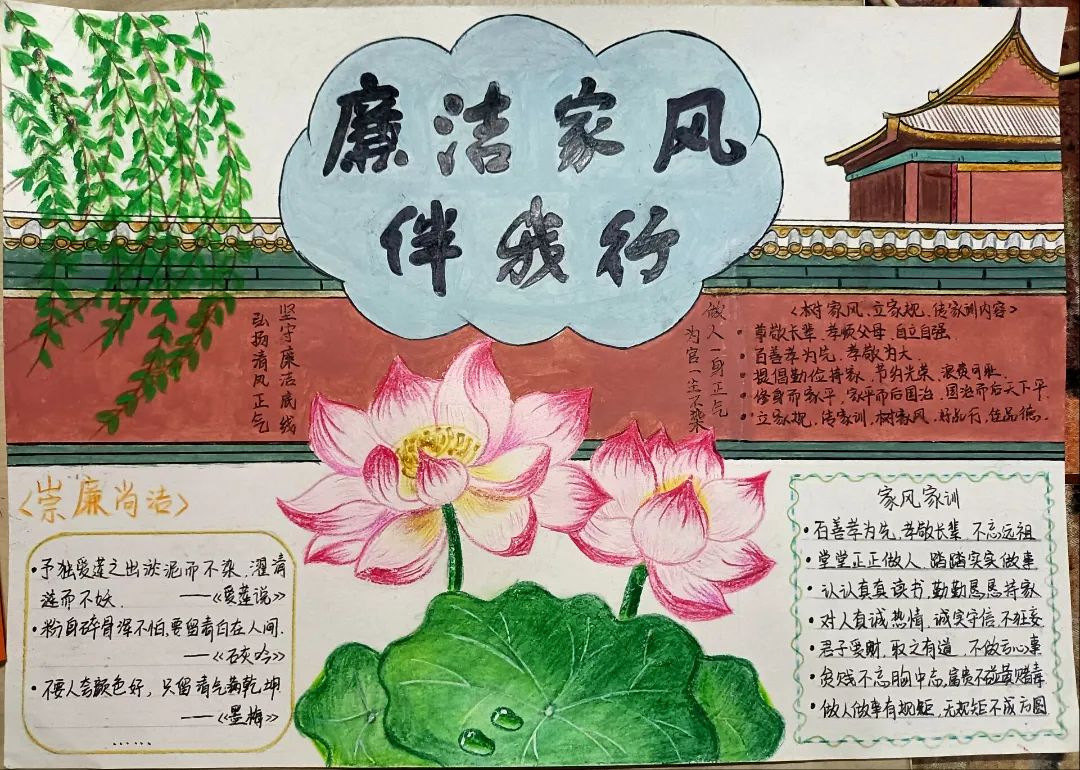 廉洁家风
伴我行
坚守廉洁底线
弘扬清风正气
做人一身正气
为官一生不染
<树家风、立家规、传家训内容>
尊敬长辈、孝顺父母、自立自强.
百善孝为先、孝敬为大.
提倡勤俭持家、节约光荣、浪费可耻.
修身而家平、家平而后国治、国治而后天下平.
立家规、传家训、树家风、好品行、佳品德.
<崇廉尚洁>
·予独爱莲之出淤泥而不染,濯清
涟而不妖.
——《爱莲说》
·粉身碎骨浑不怕,要留清白在人间.
——《石灰吟》
·不要人夸颜色好,只留清气满乾坤
——《墨梅》
……
家风家训
·百善孝为先,孝敬长辈 不忘远祖
·堂堂正正做人 踏踏实实做事
·认认真真读书,勤勤恳恳持家
·对人真诚热情 诚实守信 不狂妄
·君子爱财,取之有道,不做亏心事
·贫贱不忘胸中志,富贵不
·做人做事有规矩,无规矩不成方圆